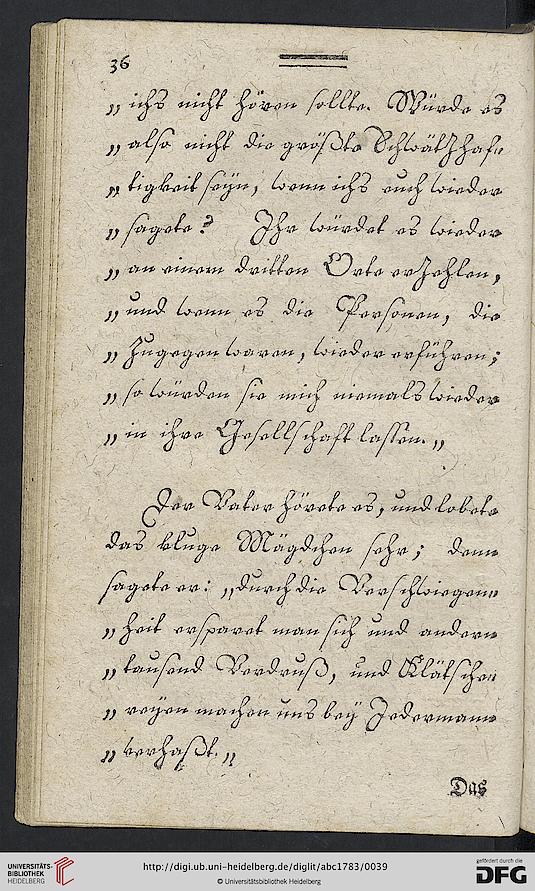 36
„ ichs nicht hören sollte. Würde es
„ also nicht die größte Schwätzhaf-
„ tigkeit seyn, wenn ichs euch wieder
„ sagete? Ihr würdet es wieder
„ an einem dritten Orte erzehlen,
„ und wenn es die Personen, die
„ zugegen waren, wieder erführen;
„ so würden sie mich niemals wieder
„ in ihre Gesellschaft lassen. „
Der Vater hörete es, und lobete
das kluge Mägdchen sehr; denn
sagete er: „durch die Verschwiegen-
„ heit ersparet man sich und andern
„ tausend Verdruß, und Klätsche-
„ reyen machen uns bey Jedermann
„ verhaßt. „
Das
UNIVERSITÄTS-
BIBLIOTHEK
HEIDELBERG
http://digi.ub.uni-heidelberg.de/diglit/abc1783/0039
© Universitätsbibliothek Heidelberg
gefördert durch die
DFG